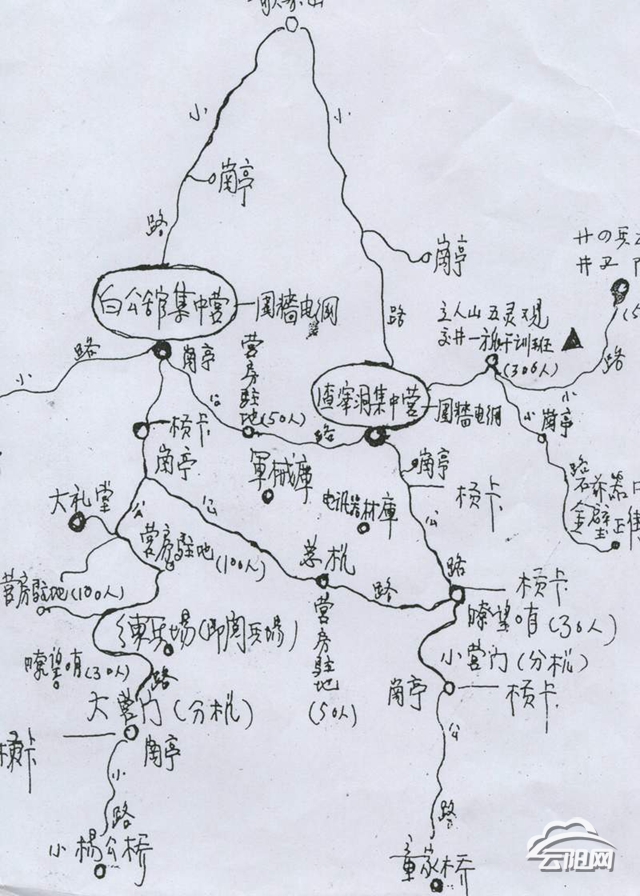 小
小
路
岗亭
岗亭
路
白公馆集中营
围墙电网
路
小
岗亭
公
营房驻地(50人)
路
渣滓洞集中营
围墙电网
(300人)
小
路
小
岗亭
路
桢卡
岗亭
公
公
大礼堂
軍械庫
电讯器材庫
岗亭
桢卡
公
路
营房驻地(100人)
营房驻地(100人)
总机
路
营房驻地
(50人)
桢卡
瞭望哨(30人)
小营门(分机)
岗亭
桢卡
練兵場(即閲兵場)
瞭望哨(30人)
路
大营门(分机)
桢卡
岗亭
小
路
小楊公桥
公
路
童家桥
云阳网